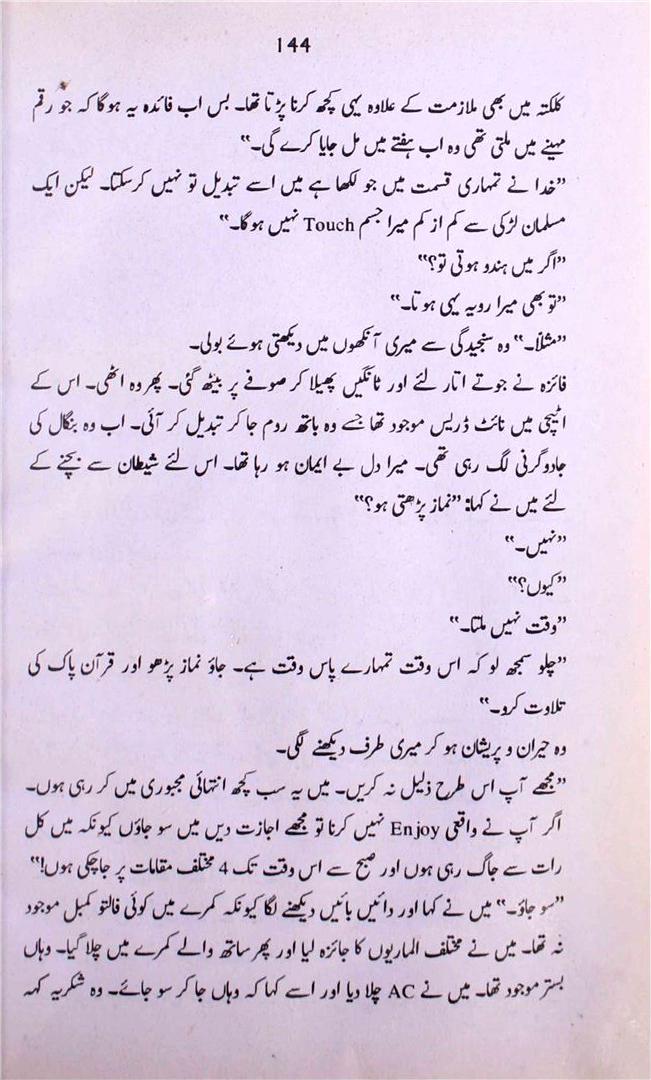 144
کلکتہ میں بھی ملازمت کے علاوہ یہی کچھ کرنا پڑتا تھا۔ بس اب فائدہ یہ ہوگا کہ جو رقم
مہینے میں ملتی تھی وہ اب ہفتے میں مل جایا کرے گی۔"
"خدا نے تمہاری قسمت میں جو لکھا ہے میں اسے تبدیل تو نہیں کرسکتا۔ لیکن ایک
مسلمان لڑکی سے کم از کم میرا جسم Touch نہیں ہوگا۔"
"اگر میں ہندو ہوتی تو؟"
"تو بھی میرا رویہ یہی ہوتا۔"
"مثلاً۔" وہ سنجیدگی سے میری آنکھوں میں دیکھتی ہوئے بولی۔
فائزہ نے جوتے اتار لئے اور ٹانگیں پھیلا کر صوفے پر بیٹھ گئی۔ پھر وہ اٹھی۔ اس کے
اٹیچی میں نائٹ ڈریس موجود تھا جسے وہ باتھ روم جا کر تبدیل کر آئی۔ اب وہ بنگال کی
جادوگرنی لگ رہی تھی۔ میرا دل بے ایمان ہو رہا تھا۔ اس لئے شیطان سے بچنے کے
لئے میں نے کہا: "نماز پڑھتی ہو؟"
"نہیں۔"
"کیوں؟"
"وقت نہیں ملتا۔"
"چلو سمجھ لو کہ اس وقت تمہارے پاس وقت ہے۔ جاؤ نماز پڑھو اور قرآن پاک کی
تلاوت کرو۔"
وہ حیران و پریشان ہو کر میری طرف دیکھنے لگی۔
"مجھے آپ اس طرح ذلیل نہ کریں۔ میں یہ سب کچھ انتہائی مجبوری میں کر رہی ہوں۔
اگر آپ نے واقعی Enjoy نہیں کرنا تو مجھے اجازت دیں میں سو جاؤں کیونکہ میں کل
رات سے جاگ رہی ہوں اور صبح سے اس وقت تک 4 مختلف مقامات پر جاچکی ہوں!"
"سو جاؤ۔" میں نے کہا اور دائیں بائیں دیکھنے لگا کیونکہ کمرے میں کوئی فالتو کمبل موجود
نہ تھا۔ میں نے مختلف الماریوں کا جائزہ لیا اور پھر ساتھ والے کمرے میں چلا گیا۔ وہاں
بستر موجود تھا۔ میں نے AC چلا دیا اور اسے کہا کہ وہاں جا کر سو جائے۔ وہ شکریہ کہہ